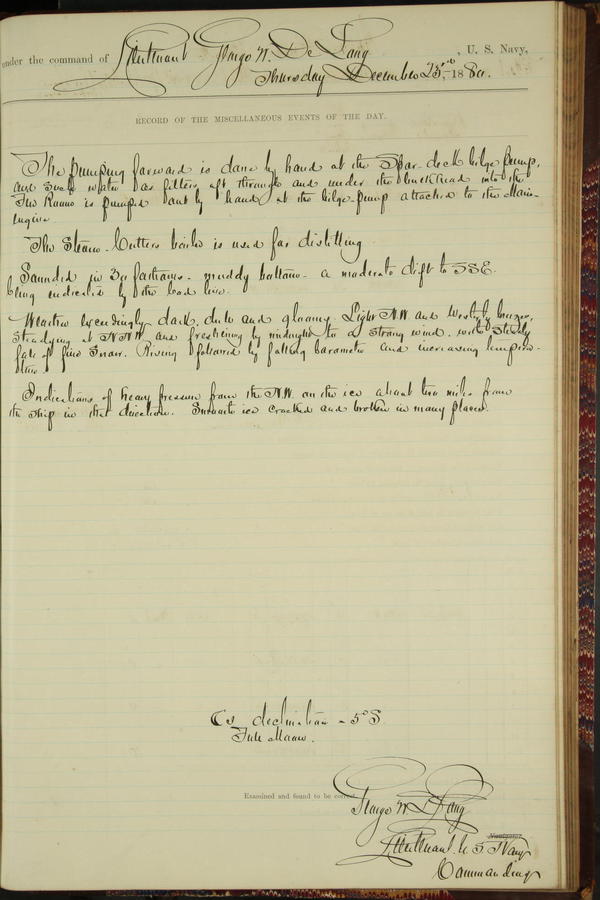 under the command of Lieutenant George W. De Long, U. S. Navy,
Thursday December 23rd, 1880.
RECORD OF THE MISCELLANEOUS EVENTS OF THE DAY.
The pumping forward is done by hand at the Spar deck bilge pump,
and such water as filters aft through and under the bulkhead into the
Fire Room is pumped out by hand at the bilge pump attached to the Main
Engine.
The Steam Cutters boiler is used for distilling.
Sounded in 39 fathoms - muddy bottom - a moderate drift to SSE.
being indicated by the lead line.
Weather exceedingly dark, dull and gloomy. Light NW and Westerly breezes,
steadying at NNW and freshening by midnight to a strong wind, with steady
fall of fine snow. Rising followed by falling barometer and increasing tempera-
ture.
Indications of heavy pressure from the NW. on the ice about two miles from
the ship in that direction. Surrounding ice cracked and broken in many places.
declination - 5° S
Full Moon.
Examined and found to be correct.
George W. De Long
Navigator.
Lieutenant U. S. Navy
Commanding